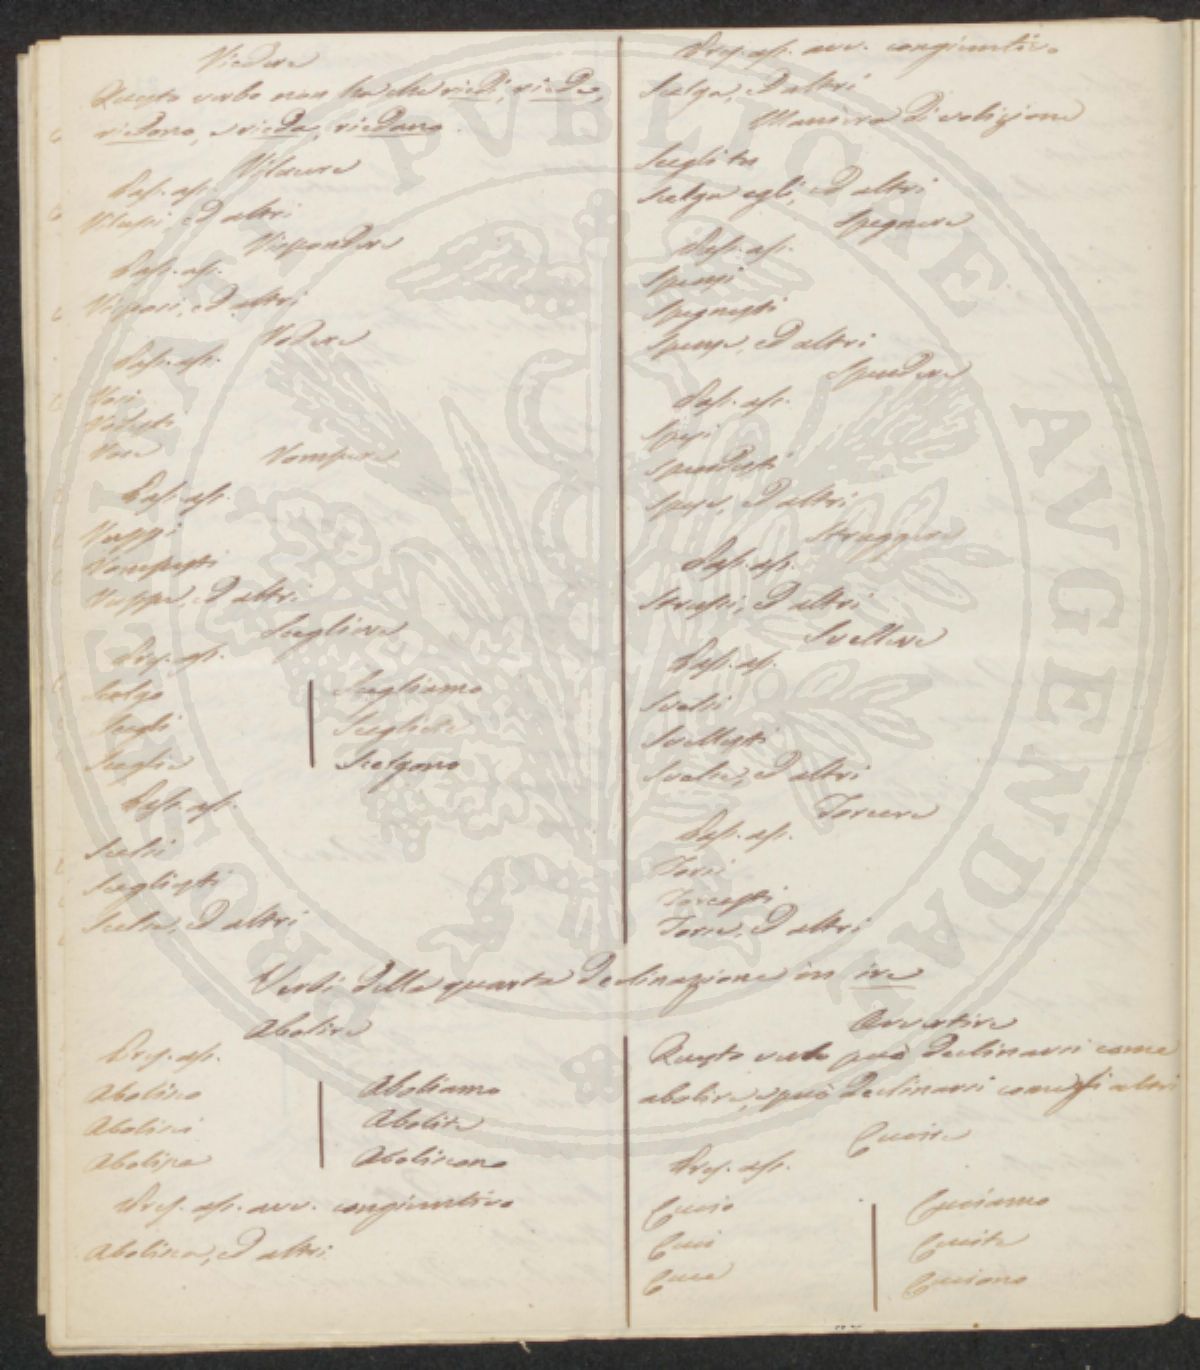 Riedere
Questo verbo non ha che riedi, riede,
riedono, e rieda, riedano.
Rilucere
Pass. ass.
Rilussi, ed altri
Rispondere
Pass. ass.
Risposi, ed altri
Rodere
Pass. ass.
Rosi
Rodesti
Rose
Rompere
Pass. ass.
Ruppi
Rompesti
Ruppe, ed altri
Scegliere
Pres. ass.
Scelgo
Scegli
Sceglie
Scegliamo
Scegliete
Scelgono
Pass. ass.
Scelsi
Scegliesti
Scelse, ed altri
Pres. ass. avv. congiuntivo
Scelga, ed altri
Maniera di volizione
Scegli tu
Scelga egli, ed altri
Spegnere
Pass. ass.
Spensi
Spegnesti
Spense, ed altri
Spendere
Pass. ass.
Spesi
Spendesti
Spese, ed altri
Struggere
Pass. ass.
Strussi, ed altri
Svellere
Pass. ass.
Svelsi
Svellesti
Svelse, ed altri
Torcere
Pass. ass.
Torsi
Torcesti
Torse, ed altri
Verbi della quarta declinazione in ire
Abolire
Pres. ass.
Abolisco
Abolisci
Abolisce
Aboliamo
Abolite
Aboliscono
Pres. ass. avv. congiuntivo
Abolisca, ed altri
Avvertire
Questo verbo può declinarsi come
abolire, e può declinarsi come gli altri
Cucire
Pres. ass.
Cucio
Cuci
Cuce
Cuciamo
Cucite
Cuciono
PVBLICAE AVGENDAE